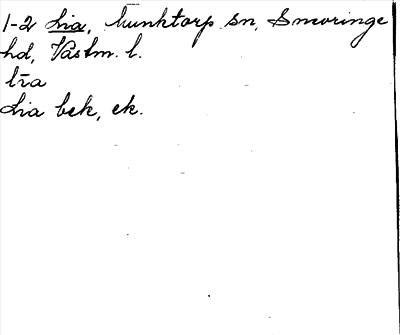 1-2 Lia, Munktorp sn, Snevringe
hd, Västm. l.
līa
Lia bek, ek.